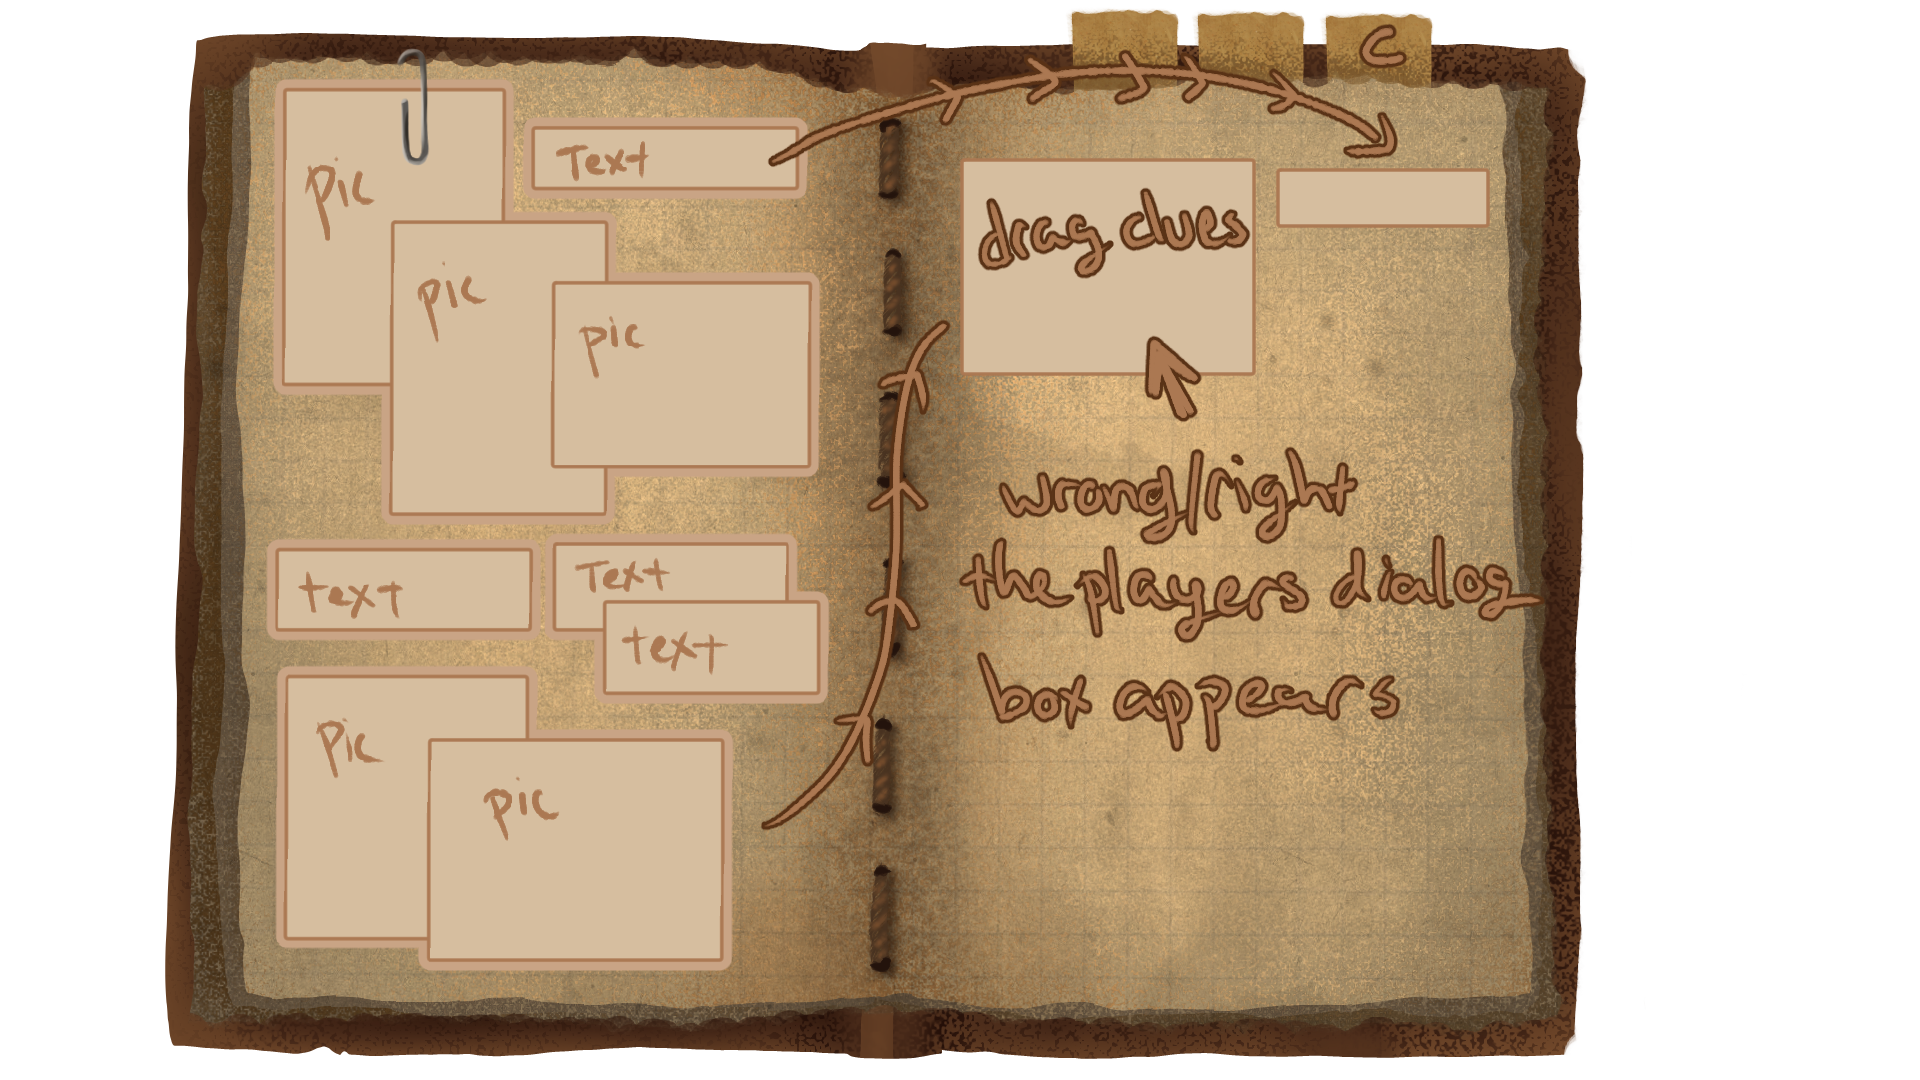 C
pic
Text
pic
pic
text
Text
text
pic
pic
drag clues
wrong/right
the players dialog
box appears